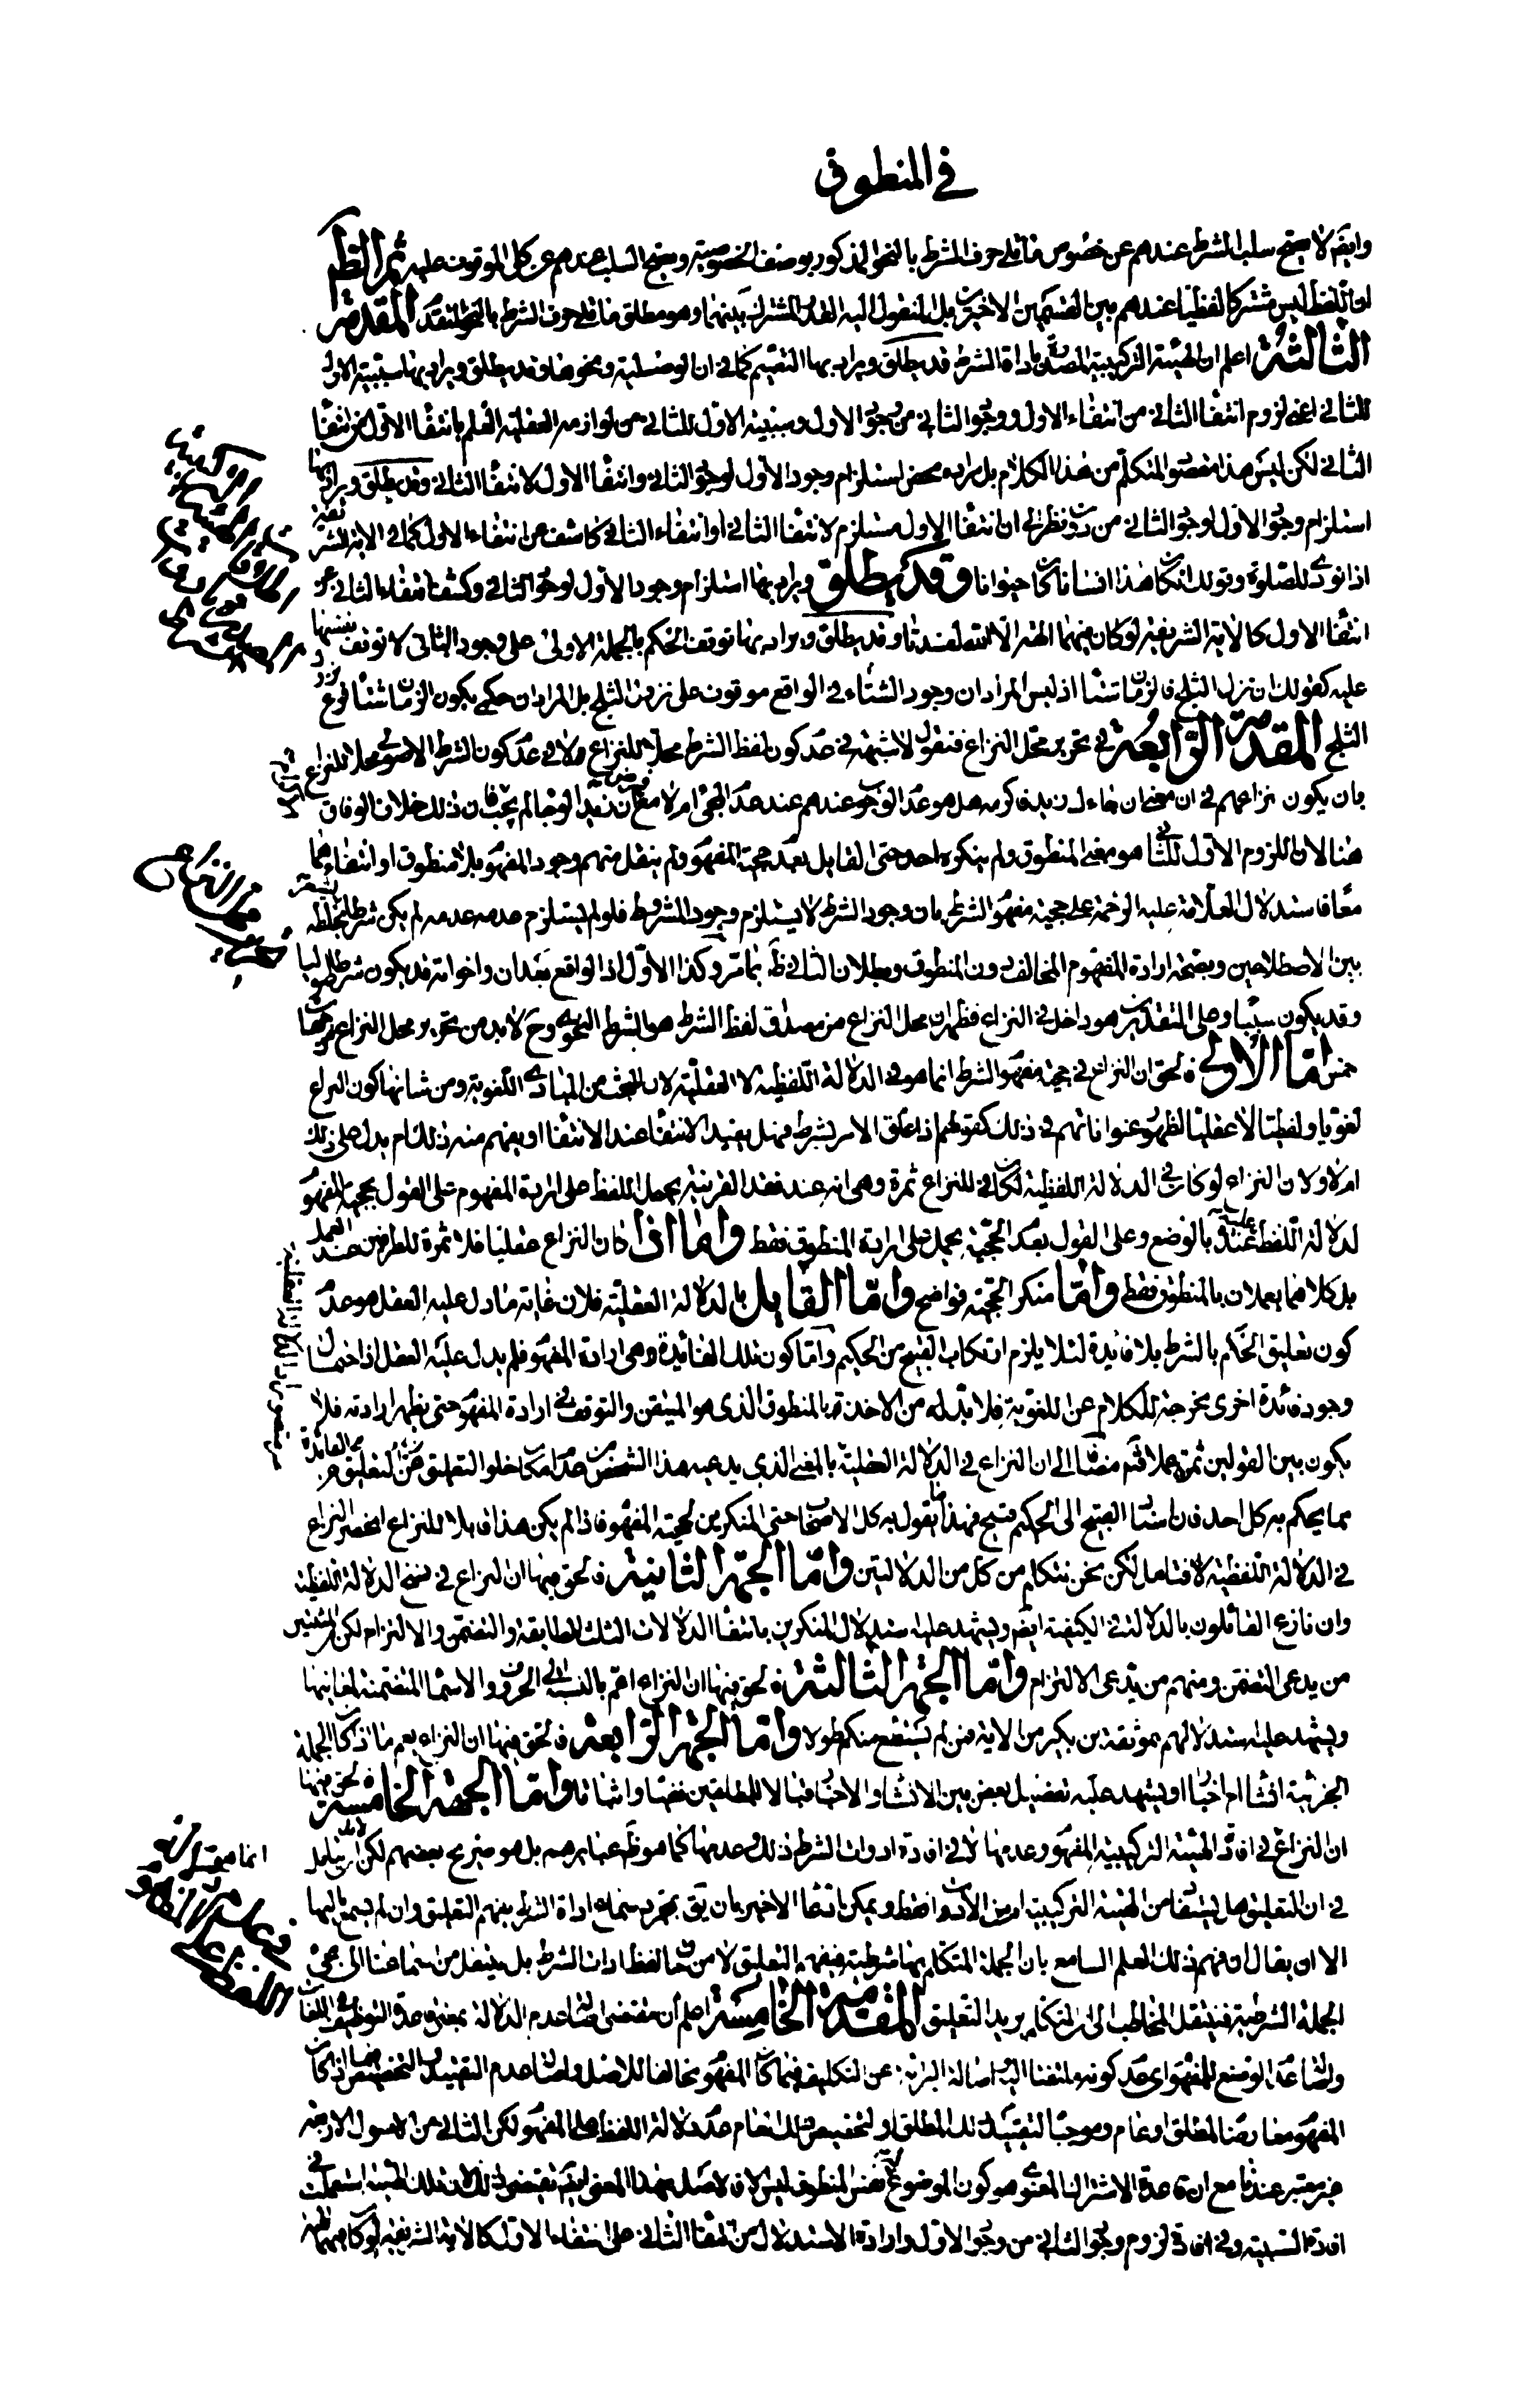 في المنطوق
وايضا لا يصح سلب الشرط عندهم عن خصوص ما تلي حرف الشرط بالنحو المذكور بوصف الخصوصية ويصح السلب عندهم عن كل الموقوف عليه ثم الظ
ان اللفظ ليس مشتركا لفظيا عندهم بين القسمين الاخيرين بل المنقول اليه القدر المشترك بينهما وهو مطلق ما تلي حرف الشرط بالنحو المتقدم المقدمة
الثالثة اعلم ان الهيئة التركيبية المصدرة باداة الشرط قد يطلق ويراد بها التعميم كما في ان الوصلية ونحوها وقد يطلق ويراد بها سببية الاول
للثاني اعني لزوم انتفاء الثاني من انتفاء الاول ووجود الثاني من وجود الاول وسببية الاول للثاني من لوازمه العقلية العلم بانتفاء الاول من انتفاء
الثاني لكن ليس هذا مقصود المتكلم من هذا الكلام بل مراده محض استلزام وجود الاول لوجود الثاني وانتفاء الاول لانتفاء الثاني وقد يطلق ويراد بها
استلزام وجود الاول لوجود الثاني من دون نظر الى ان انتفاء الاول مستلزم لانتفاء الثاني او انتفاء الثاني كاشف عن انتفاء الاول كما في الاية الشريفة
اذا نودي للصلوة وقولك ان كان هذا انسانا كان حيوانا وقد يطلق ويراد بها استلزام وجود الاول لوجود الثاني وكشف انتفاء الثاني عن
انتفاء الاول كالاية الشريفة لو كان فيهما الهة الا الله لفسدتا وقد يطلق ويراد بها توقف الحكم بالجملة الاولى على وجود الثاني لا توقف نفسها
عليه كقولك ان نزل الثلج فالزمان شتاء اذ ليس المراد ان وجود الشتاء في الواقع موقوف على نزول الثلج بل المراد ان حكمي بكون الزمان شتاء فرع
الثلج المقدمة الرابعة في تحرير محل النزاع فنقول لا شبهة في عدم كون لفظ الشرط محلا للنزاع ولا في عدم كون الشرط الاصولي محلا للنزاع
بان يكون نزاعهم في ان معنى ان جاءك زيد فاكرمه هل هو عدم الوجوب عندهم عند عدم المجئ ام لا
هنا لان اللزوم الاول للثاني هو معنى المنطوق ولم ينكره احد حتى القايل بعدم حجية المفهوم ولم ينقل منهم وجود المفهوم بلا منطوق او انتفاءهما
معا فاستدلال العلامة عليه الرحمة على حجية مفهوم الشرط بان وجود الشرط لا يستلزم وجود المشروط فلو لم يستلزم عدمه عدمه لم يكن شرطا خلط
بين الاصطلاحين وبصحة ارادة المفهوم المخالف دون المنطوق وبطلان الثاني ظ بما مر وكذا الاول اذ الواقع بعد ان واخواته قد يكون شرطا
وقد يكون سببا وعلى التقديرين هو داخل في النزاع فظهر ان محل النزاع من مصداق لفظ الشرط هو الشرط النحوي وح لا بد من تحرير محل النزاع من جهات
خمس اما الاولى فالحق ان النزاع في حجية مفهوم الشرط انما هو في الدلالة اللفظية لا العقلية لان البحث من المبادي اللغوية ومن شانها كون النزاع
لغويا ولفظيا لا عقليا لظهور عنواناتهم في ذلك كقولهم اذا علق الامر بشرط فهل يفيد الانتفاء عند الانتفاء او يفهم منه ذلك ام يدل على ذلك
ام لا ولان النزاع لو كان في الدلالة اللفظية لكان للنزاع ثمرة وهي انه عند فقد القرينة يحمل اللفظ على ارادة المفهوم على القول بحجية المفهوم
لدلالة اللفظ عليه بالوضع وعلى القول بعدم الحجية يحمل على ارادة المنطوق فقط واما اذا كان النزاع عقليا فلا ثمرة للطرفين عند العمل
بل كلاهما يعملان بالمنطوق فقط واما منكر الحجية فواضح واما القايل بالدلالة العقلية فلان غاية ما دل عليه العقل هو عدم
كون تعليق الحكم بالشرط بلا فايدة لئلا يلزم ارتكاب القبيح من الحكيم واما كون تلك الفائدة وهي ارادة المفهوم فلم يدل عليه العقل اذ احتمال
وجود فائدة اخرى مخرجة للكلام عن اللغوية فلا بد له من الاخذ بالمنطوق الذي هو المتيقن والتوقف في ارادة المفهوم حتى يظهر ارادته فلا
يكون بين القولين ثمرة عملا فتم مضافا الى ان النزاع في الدلالة العقلية بالمعنى الذي يدعيه هذا الشخص من عدم امكان خلو التعليق عن الفائدة
مما يحكم به كل احد فان اسناد القبيح الى الحكيم قبيح فهذا مما يقول به كل الاصحاب حتى المنكرين لحجية المفهوم فاذا لم يكن هذا قابلا للنزاع انحصر النزاع
في الدلالة اللفظية لا فتامل لكن نحن نتكلم من كل من الدلالتين واما الجهة الثانية فالحق فيها ان النزاع في نسخ الدلالة اللفظية
وان نازع القائلون بالدلالة في الكيفية ايضا ويشهد عليه استدلال المنكرين بانتفاء الدلالات الثلث المطابقة والتضمن والالتزام لكن المثبتين
من يدعي التضمن ومنهم من يدعي الالتزام واما الجهة الثالثة فالحق فيها ان النزاع اعم بالنسبة الى الحروف والاسماء المتضمنة لمعانيها
ويشهد عليه استدلالهم بموثقة بن بكير من الاية فمن لم يستطع منكم طولا واما الجهة الرابعة فالحق فيها ان النزاع يعم ما اذا كان الجملة
الجزئية انشاء ام اخبارا ويشهد عليه تفضيل بعض بين الانشاء والاخبار قبالا للمطلقين نفيا واثباتا واما الجهة الخامسة فالحق فيها
ان النزاع في افادة الهيئة التركيبية المفهوم وعدمها لا في افادة ادوات الشرط ذلك وعدمها كما هو ظ عبايرهم بل هو صريح بعضهم
في ان التعليق هل يستفاد من الهيئة التركيبية ام من الادوات فقط ويمكن ادعاء الاخير بان يق بمجرد سماع اداة الشرط يفهم التعليق وان لم يسمع تاليها
الا ان يقال ان فهم ذلك لعلم السامع بان الجملة المتكلم بها شرطية فيفهم التعليق لا من حاق لفظ ادات الشرط بل ينتقل من استماعنا الى مجئ
الجملة الشرطية فينتقل المخاطب الى ان المتكلم يريد التعليق المقدمة الخامسة اعلم ان مقتضى اصالة عدم الدلالة بمعنى عدم التوظيف في اللغات
واصالة عدم الوضع للمفهوم اي عدم كونه ملتفتا اليه اصالة البرائة عن التكليف فيما كان المفهوم مخالفا للاصل واصالة عدم التقييد والتخصيص فيما اذا كان
المفهوم معارضا لمطلق او عام وموجبا لتقييد ذلك المطلق او لتخصيص ذلك العام عدم دلالة اللفظ على المفهوم لكن الثاني من الاصول الاربعة
غير معتبر عندنا مع ان قاعدة الاشتراك المعنوي هو كون الموضوع له نفس المنطوق ليس الا فالاصل بهذا المعنى ايضا يقتضي ذلك لان تلك الهيئة استعملت في
افادة السببية وفي افادة لزوم وجود الثاني من وجود الاول وارادة الاستدلال من انتفاء الثاني على انتفاء الاول كالاية الشريفة لو كان فيهما الهة